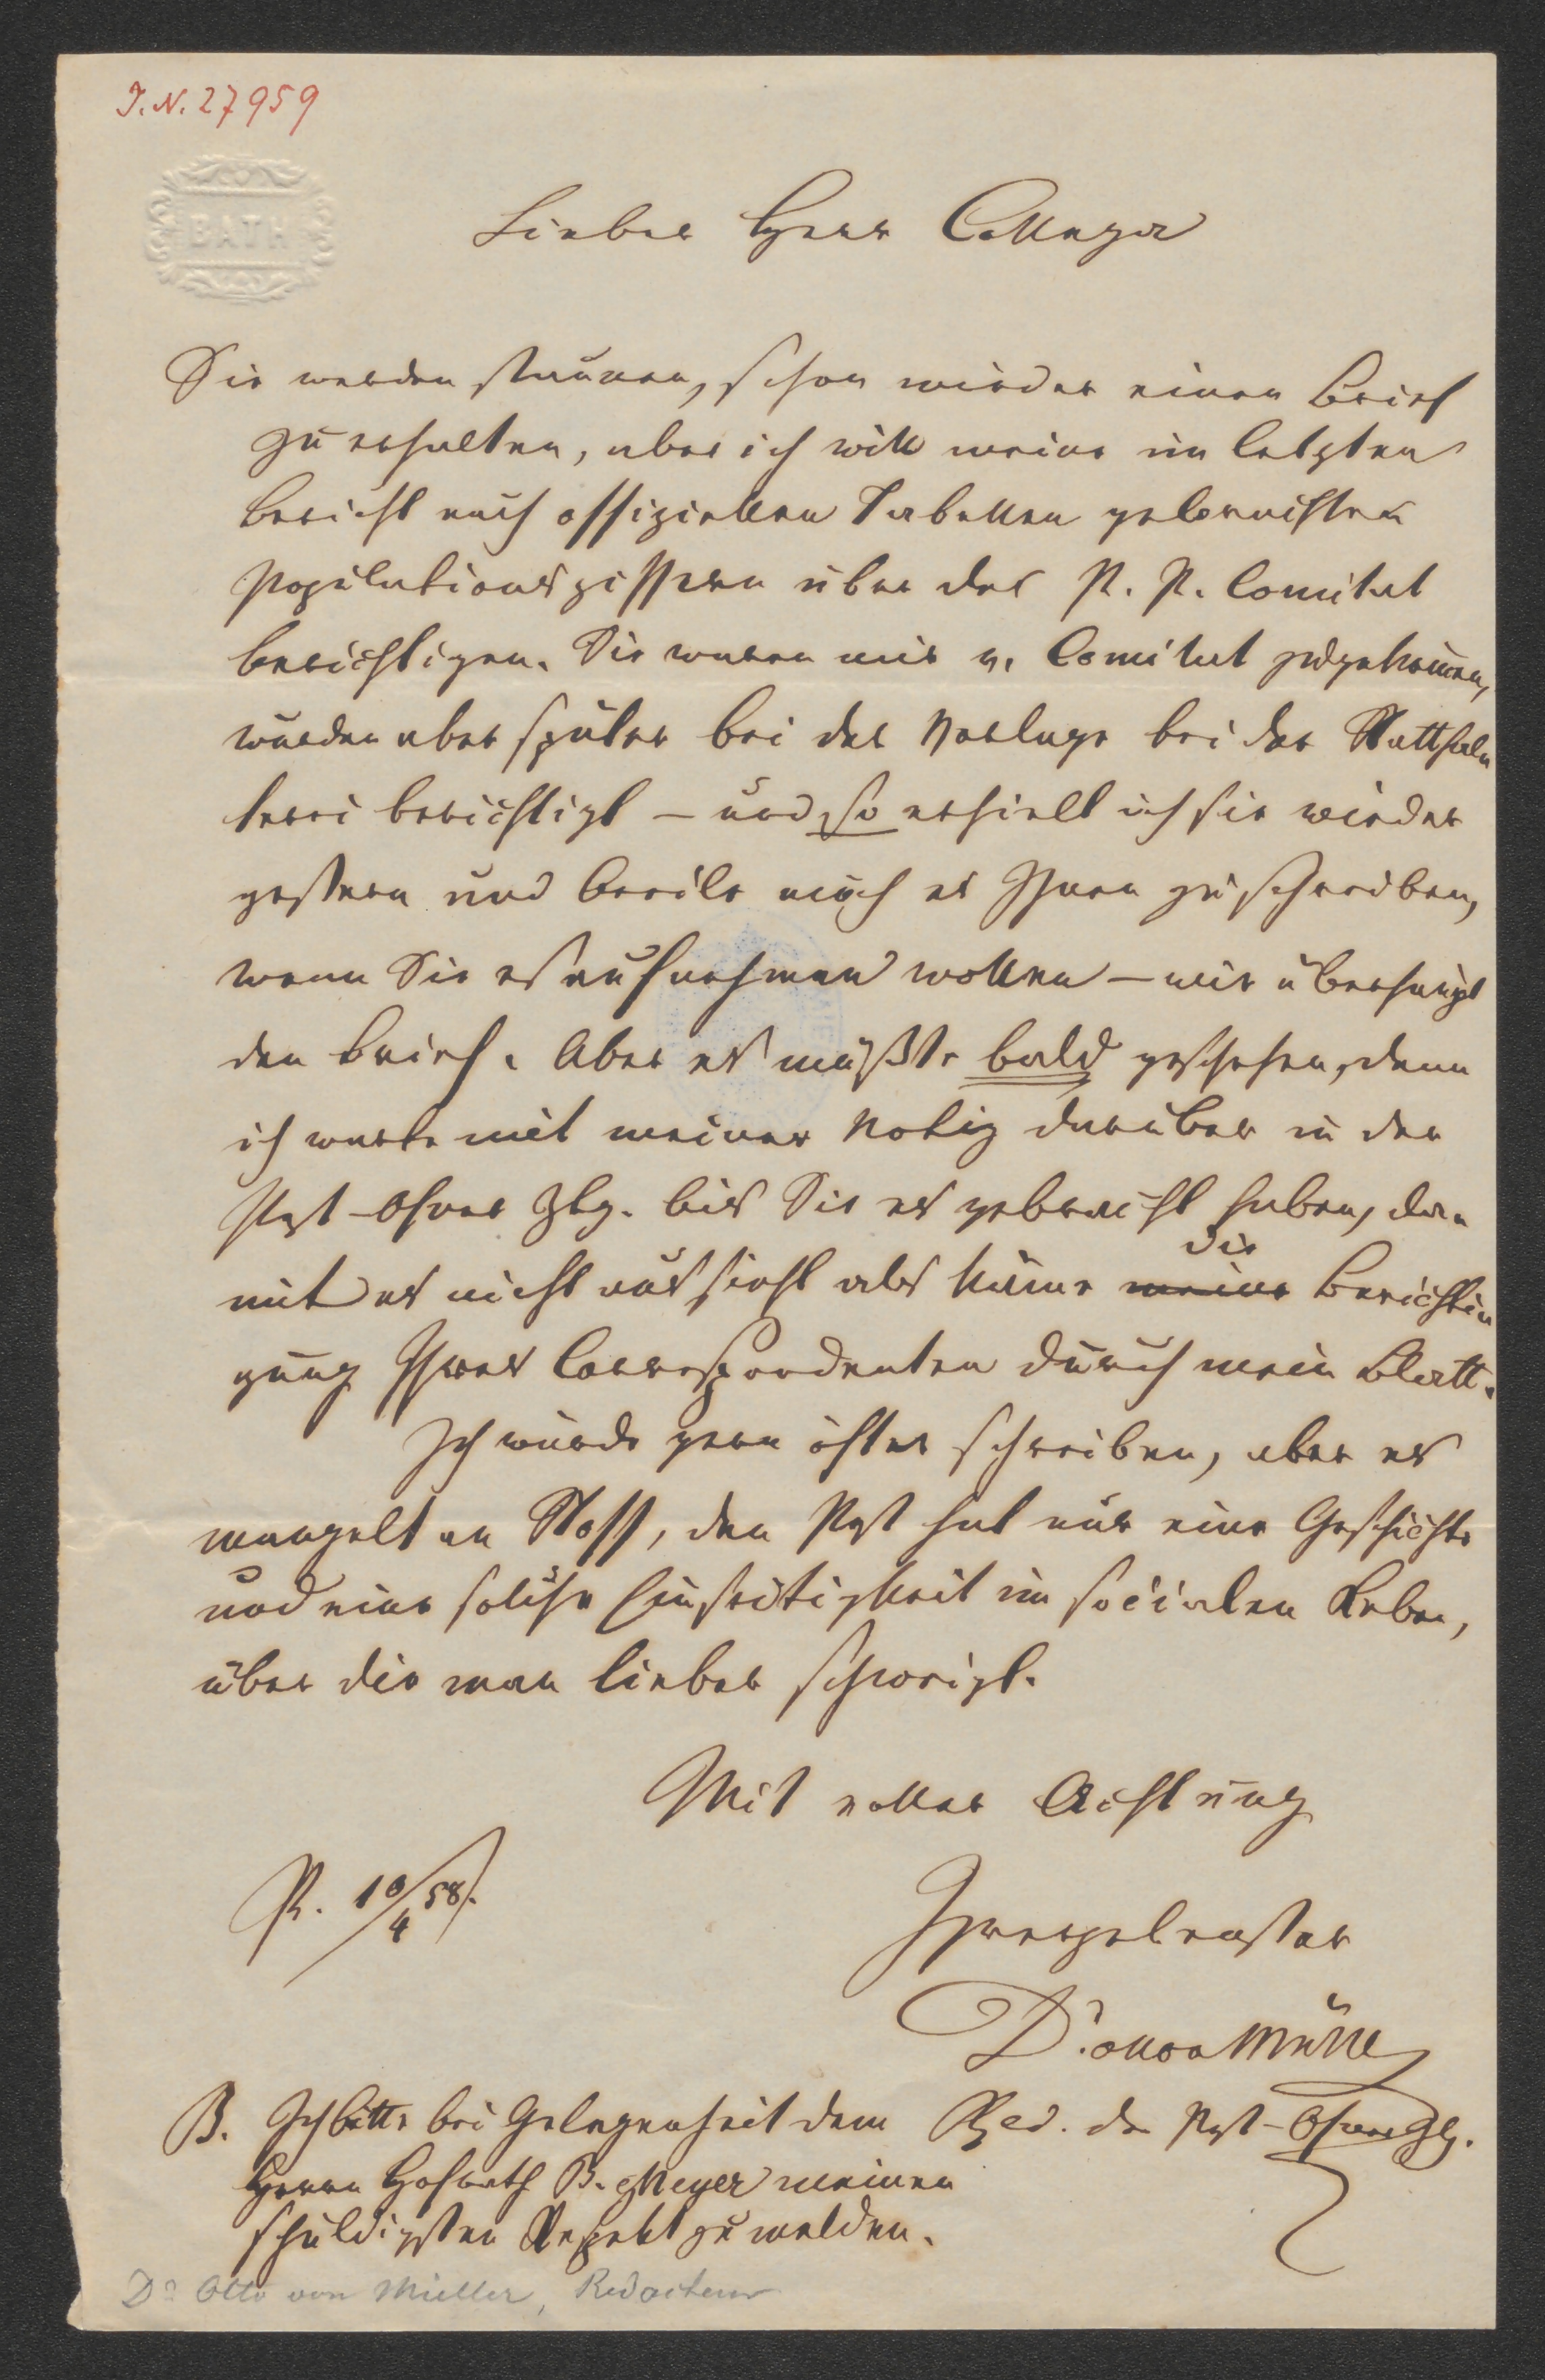 I. N. 27959
BATH
Lieber Herr Collega
Sie werden staunen, schon wieder einen Brief
zu erhalten, aber ich will meine im letzten
Bericht nach offiziellen Tabellen gebrachten
Populationsziffern über das P. P. Comitat
berichtigen. Sie waren mir v. Comitat zugekom̄en,
wurden aber später bei der Vorlage bei der Statthal-
terei berichtigt – und so erhielt ich sie wieder
gestern und beeile mich es Ihnen zu schreiben,
wenn Sie es aufnehmen wollen – wie überhaupt
den Brief. Aber es müßte bald geschehen, denn
ich warte mit meiner Notiz darüber in der
Pest-Ofner Ztg. bis Sie es gebracht haben, da-
mit es nicht aussieht als käme meine die Berichti-
gung Ihres Correspondenten durch mein Blatt.
Ich würde gern öfter schreiben, aber es
mangelt an Stoff, den Pest hat nur eine Geschichte
und eine solche Einseitigkeit im socialen Leben,
über die man lieber schweigt.
Mit voller Achtung
P. 10/4 58.
Ihr ergebenster
Dr. Otto v Müller
Red. der Pest-Ofner Ztg.
PS. Ich bitte bei Gelegenheit dem
Herrn Hofrath B. Meyer meinen
schuldigsten Respekt zu melden.
Dr Otto von Müller, Redacteur